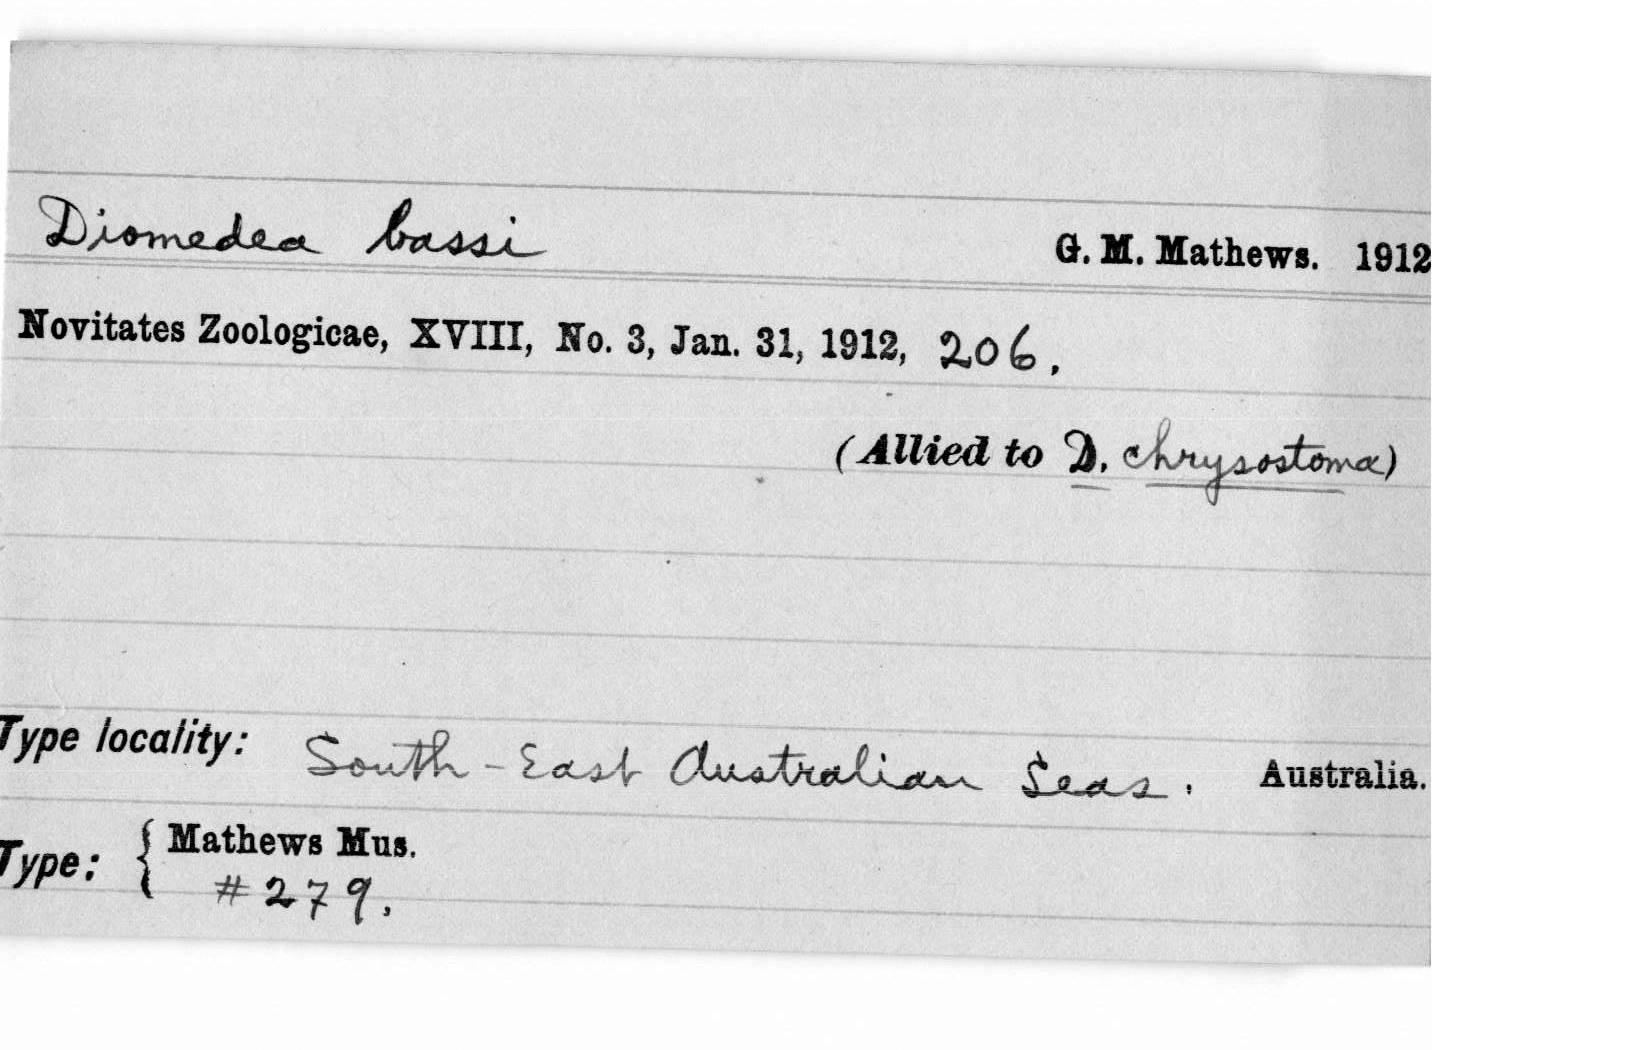 Diomedea bassi G. M. Mathews. 1912
Novitates Zoologicae, XVIII, No. 3, Jan. 31, 1912, 206.
(Allied to D. chrysostoma)
Type locality: South-East Australian Seas. Australia.
Type: { Mathews Mus.
#279.